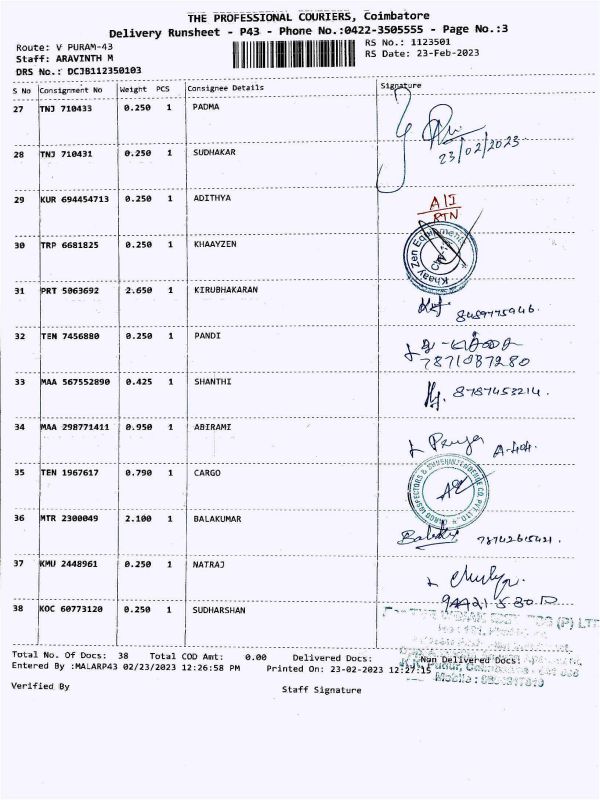 THE PROFESSIONAL COURIERS, Coimbatore
Delivery Runsheet - P43 - Phone No.:0422-3505555 - Page No.:3
Route: V PURAM-43 RS No.: 1123501
Staff: ARAVINTH M RS Date: 23-Feb-2023
DRS No.: DCJB112350103
S No Consignment No Weight PCS Consignee Details Signature
27 TNJ 710433 0.250 1 PADMA
23/02/2023
28 TNJ 710431 0.250 1 SUDHAKAR
29 KUR 694454713 0.250 1 ADITHYA A/I
RTN
30 TRP 6681825 0.250 1 KHAAYZEN Khaay Zen
31 PRT 5063692 2.650 1 KIRUBHAKARAN
32 TEN 7456880 0.250 1 PANDI
7871087280
33 MAA 567552890 0.425 1 SHANTHI 8787453214.
34 MAA 298771411 0.950 1 ABIRAMI Priya A-404.
35 TEN 1967617 0.790 1 CARGO
36 MTR 2300049 2.100 1 BALAKUMAR
37 KMU 2448961 0.250 1 NATRAJ
38 KOC 60773120 0.250 1 SUDHARSHAN
(P) LTD
Total No. Of Docs: 38 Total COD Amt: 0.00 Delivered Docs: Non Delivered Docs:
Entered By :MALARP43 02/23/2023 12:26:58 PM Printed On: 23-02-2023 12:27:15
Mobile :
Verified By Staff Signature